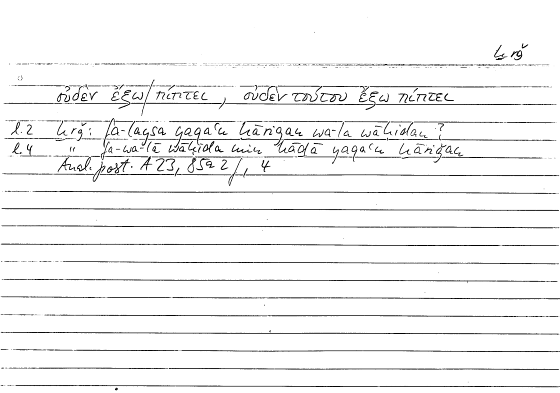 ḫrǧ
οὐδὲν ἔξω/πίπτει, οὐδὲν τούτου ἔξω πίπτει
l.2 ḫrǧ: fa-laysa yaqaʿu ḫāriǧan wa-la wāḥidan?
l.4 " fa-wa-lā wāḥida min hāḏā yaqaʿu ḫāriǧan
Anal. post. A 23, 85a 2/, 4